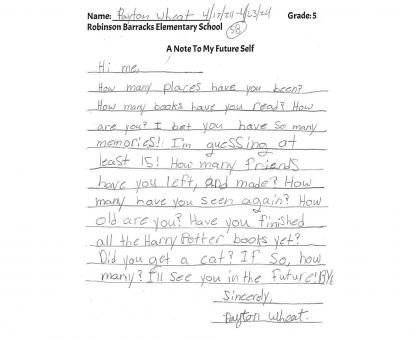 Name: Payton Wheat 4/17/24-4/23/24 Grade: 5
Robinson Barracks Elementary School
A Note To My Future Self
Hi me,
How many places have you been?
How many books have you read? How
are you? I bet you have so many
memories!! I'm guessing at
least 15! How many friends
have you left, and made? How
many have you seen again? How
old are you? Have you finished
all the Harry Potter books yet?
Did you get a cat? If so, how
many? I'll see you in the future!
Sincerely,
Payton Wheat.